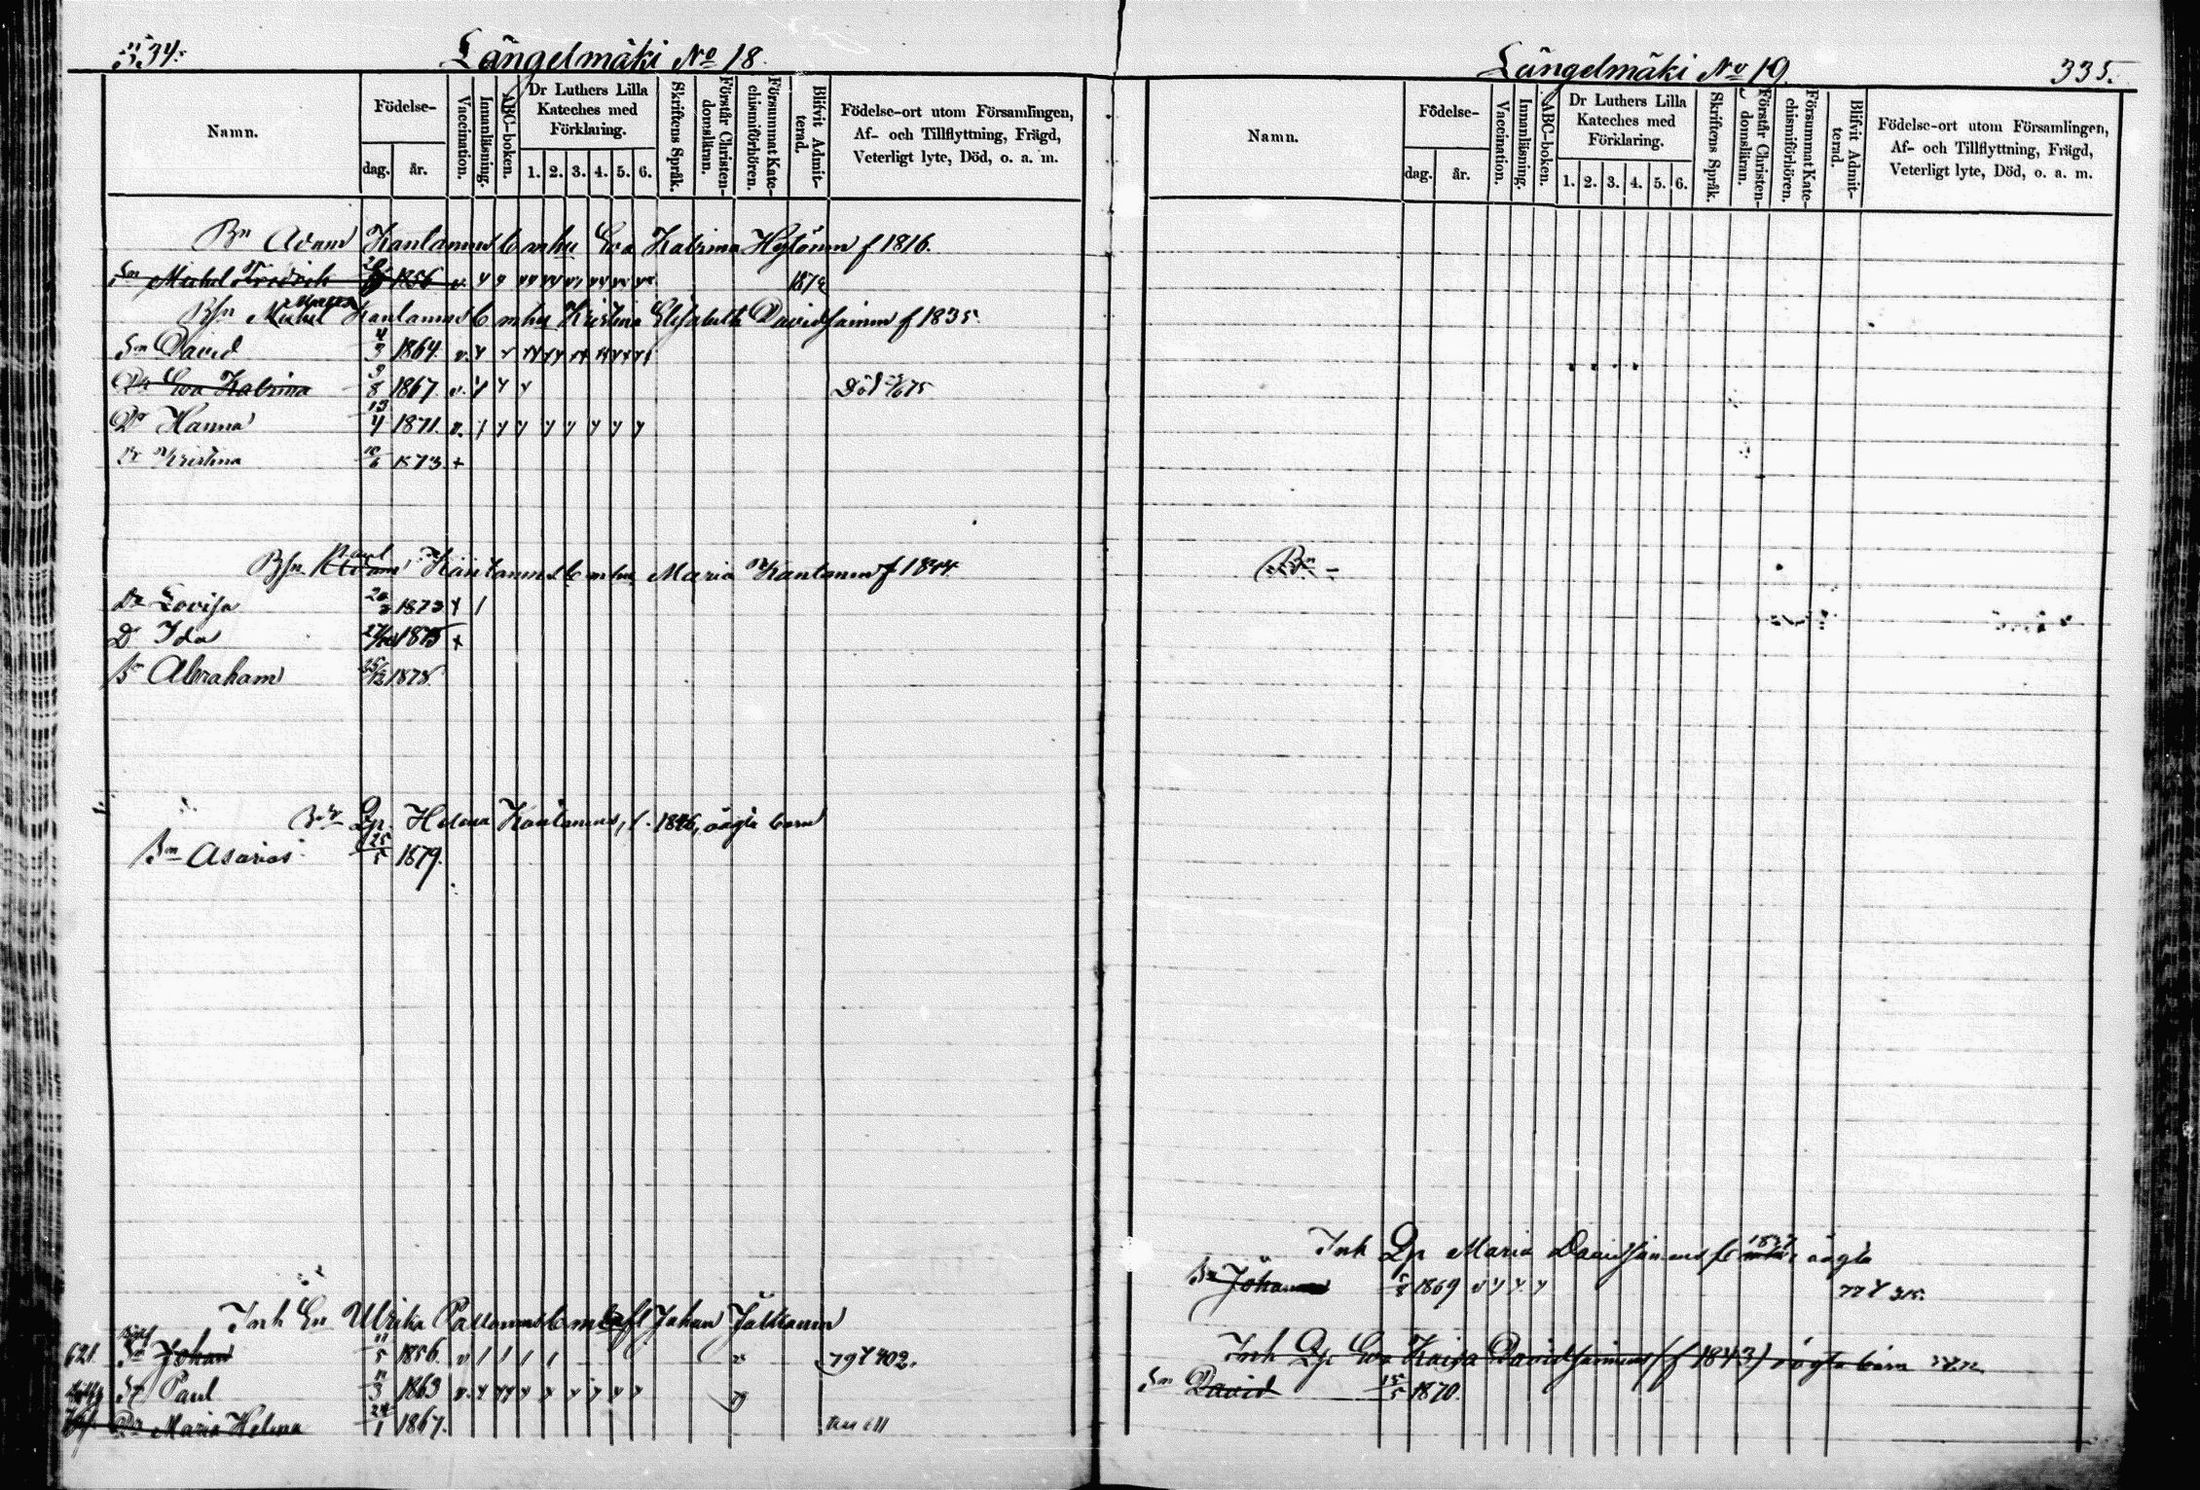 334.
Längelmäki No 18.
Namn.
Födelse-
dag.
år.
Vaccination.
Innanläsning.
ABC-boken.
Dr Luthers Lilla
Kateches med
Förklaring.
1. 2. 3. 4. 5. 6.
Skriftens Språk.
Förstår Christen-
domsläran.
Försummat Kate-
chismiförhören.
Blifvit Admit-
terad.
Födelse-ort utom Församlingen,
Af- och Tillflyttning, Frägd,
Veterligt lyte, Död, o. a. m.
Bn Adam Kantanens b m hu Eva Katrina f 1816.
Sn Michel Fredrik 1856 v.
Bsn Michel Kantanens b m hu Kristina Elisabeth Davidsainen f 1835.
Sn David 4/3 1864. v.
Dr Eva Katrina 3/8 1867. v. Död 75
Dr Hanna 13/4 1871. v.
Dr Kristina 10/6 1873 +
Bsn Adam Paul Kantanens b m hu Maria Kantanen f 1844.
Dr Lovisa 1873
Dr Ida 1875 +
Sn Abraham 25/12 1878.
Lp. Helena Kantanens, f. 1846, oägta barn
Sn Asarias 25/5 1879.
Inh En Ulrika b m afl Johan
621. Sn Johan 11/5 1856. v 79 402.
Sn Paul 11/3 1863 v.
Dr Maria Helena 24/1 1867.
Längelmäki No 19
335.
Namn.
Födelse-
dag.
år.
Vaccination.
Innanläsning.
ABC-boken.
Dr Luthers Lilla
Kateches med
Förklaring.
1. 2. 3. 4. 5. 6.
Skriftens Språk.
Förstår Christen-
domsläran.
Försummat Kate-
chismiförhören.
Blifvit Admit-
terad.
Födelse-ort utom Församlingen,
Af- och Tillflyttning, Frägd,
Veterligt lyte, Död, o. a. m.
Bn
Inh Lp Maria Davidsainens oägta
Sn Johannes 1869 77 315.
Inh Lp Eva Kaisa Davidsainens (f 1843) oägta barn
Sn David 15/5 1870.